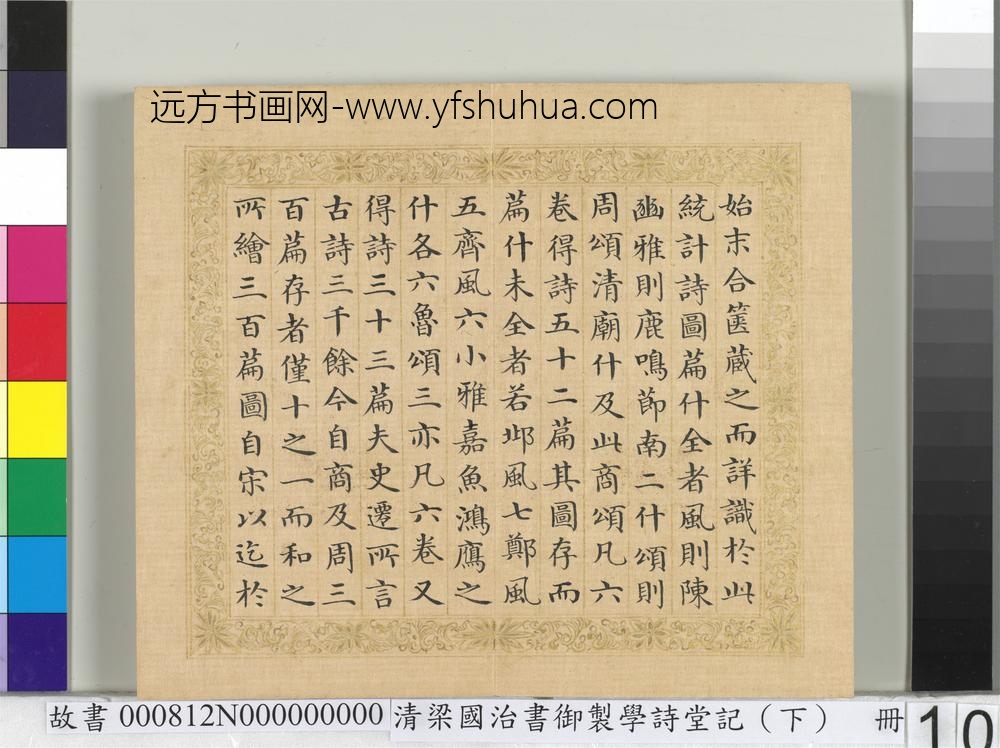 远方书画网-www.yfshuhua.com
始末合箧蔵之而詳識於此
統計詩圖篇什全者風則陳
豳雅則鹿鳴節南二什頌則
周頌清廟什及此商頌凡六
卷得詩五十二篇其圖存而
篇什未全者若邶風七鄭風
五齊風六小雅嘉魚鴻鴈之
什各六魯頌三亦凡六卷又
得詩三十三篇夫史遷所言
古詩三千餘今自商及周三
百篇存者僅十之一而和之
所繪三百篇圖自宋以迄於
故書 000812N000000000 清梁國治書御製學詩堂記（下） 冊 10